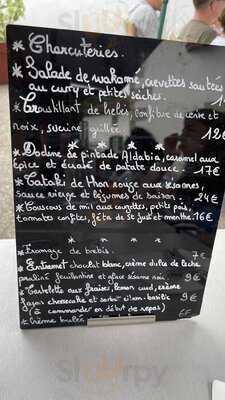 * Charcuteries.
* Salade de wakamé, crevettes sautées
au curry et pêches séchées.
* Croustillant de brebis, confiture de cerise et
noix, sucrine grillée. 12€
* * * *
* Dodine de pintade Aldabia, caramel aux
épice et écrasé de patate douce. 17€
* Tataki de thon rouge aux sésames,
sauce vierge et légumes de saison. 24€
* Couscous de mil aux courgettes, petits pois,
tomates confites, féta de St Just et menthe 16€
* * * *
* Fromage de brebis. 7€
* Entremet chocolat blanc, crème dulce de leche
praliné feuillantine et glace sésame noir. 9€
* Tartelette aux fraises, lemon curd, crème
façon cheesecake et sorbet citron-basilic 9€
(à commander en début de repas)
* Crème brulée